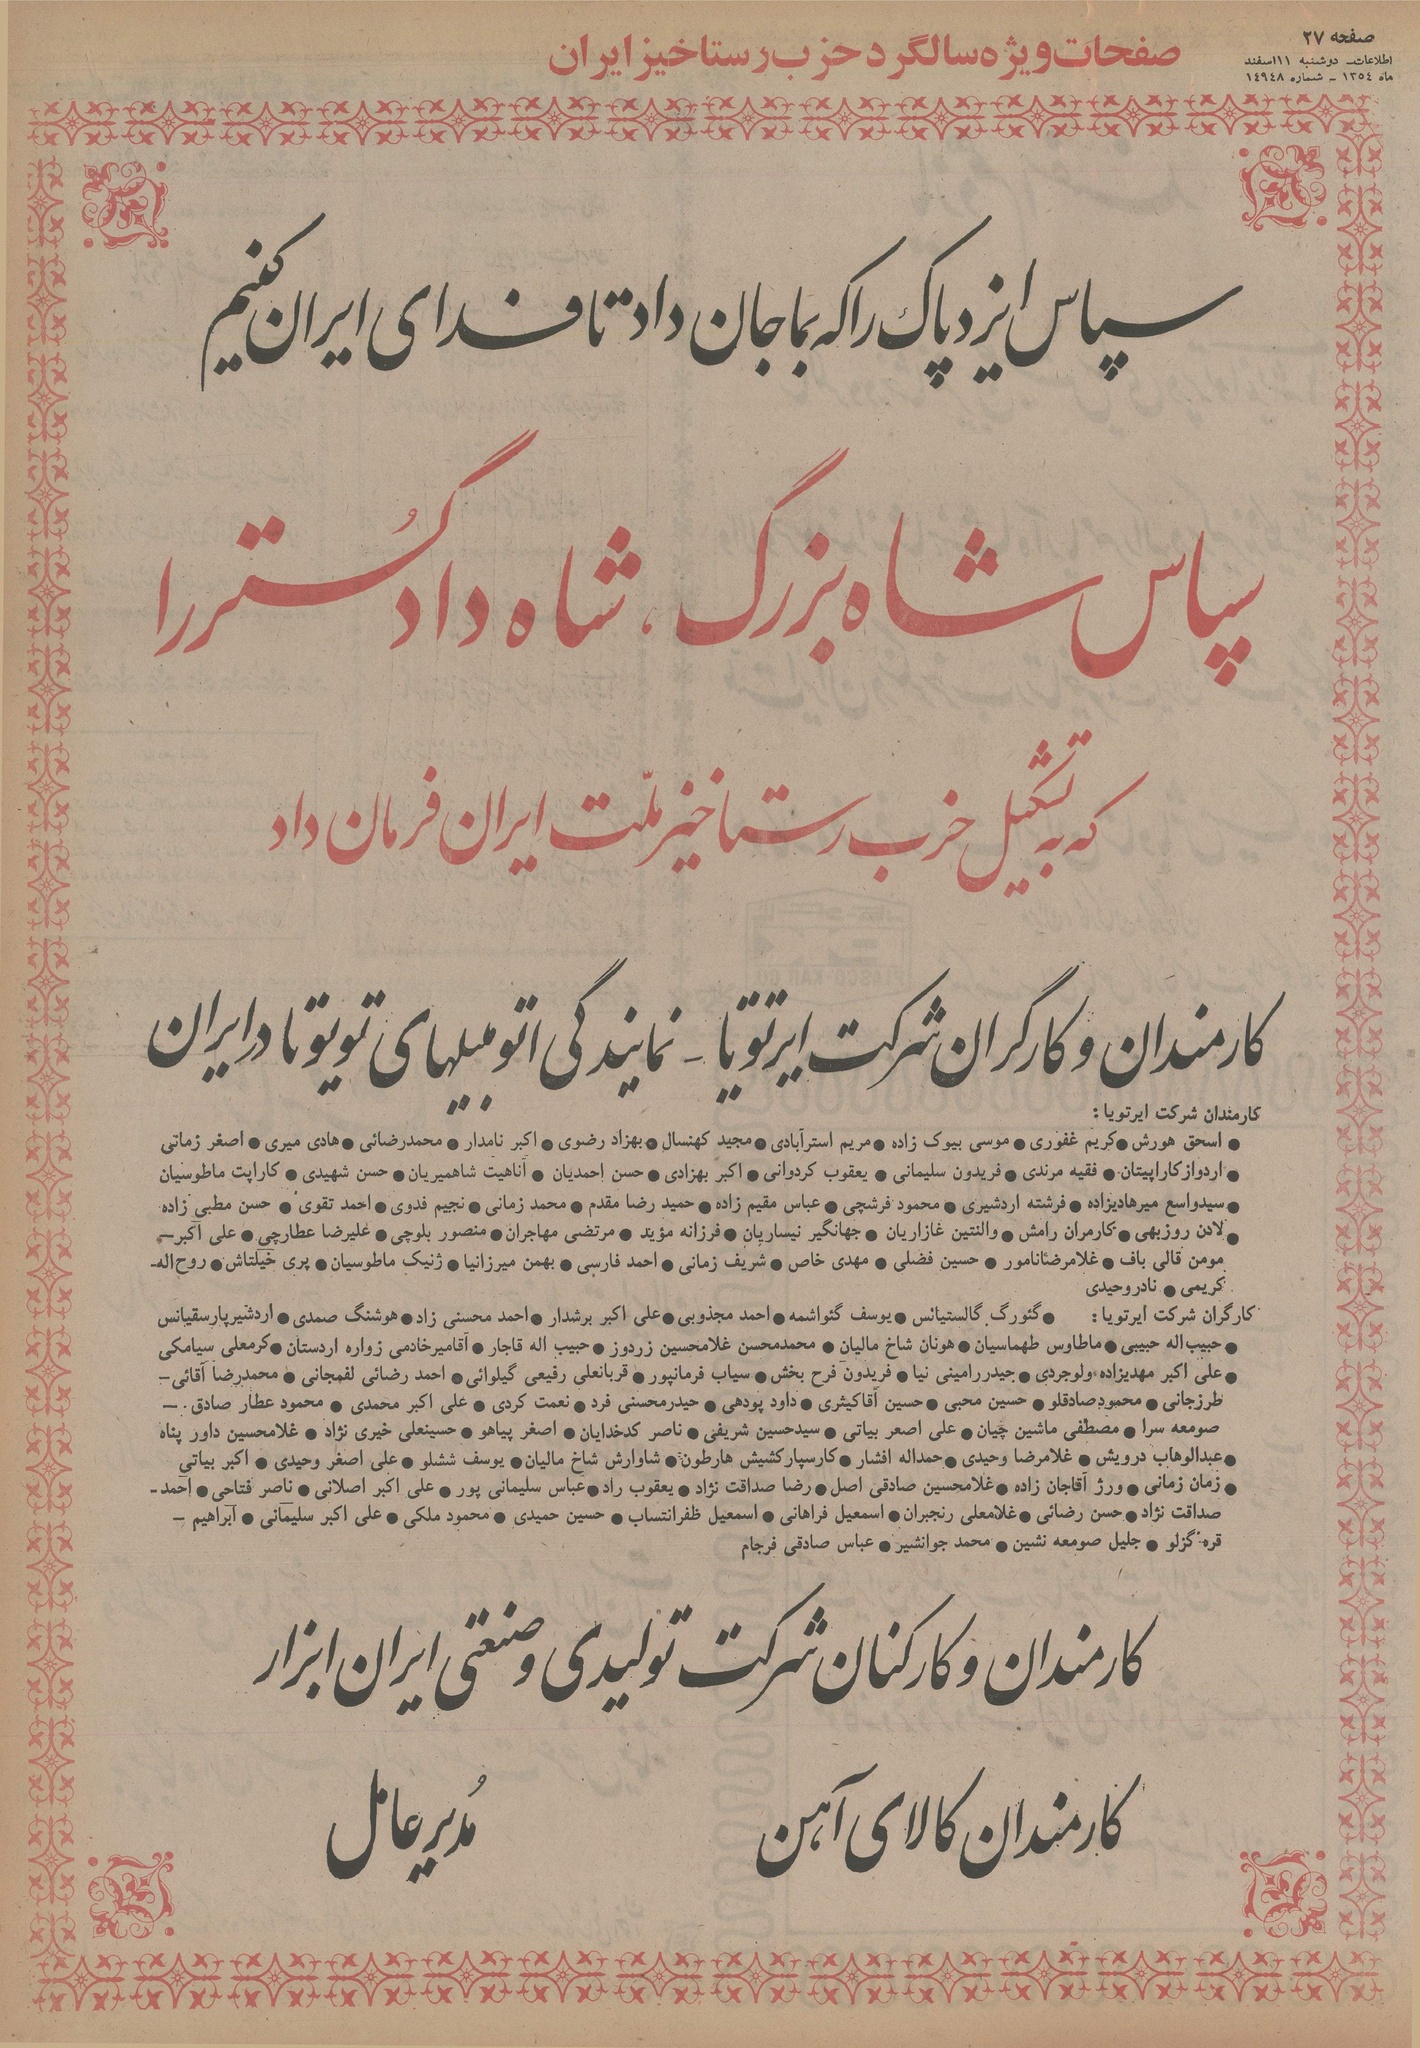 صفحه ۲۷
اطلاعات - دوشنبه ۱۱ اسفند
ماه ۱۳۵٤ - شماره ۱٤۹٤۸
صفحات ویژه سالگرد حزب رستاخیز ایران
سپاس ایزد پاک را که بما جان داد تا فدای ایران کنیم
سپاس شاه بزرگ، شاه دادگُستر را
که به تشکیل حزب رستاخیز ملّت ایران فرمان داد
کارمندان و کارگران شرکت ایرتویا - نمایندگی اتومبیلهای تویوتا در ایران
کارمندان شرکت ایرتویا :
● اسحق هورش ● کریم غفوری ● موسی بیوک زاده ● مریم استرآبادی ● مجید کهنسال ● بهزاد رضوی ● اکبر نامدار ● محمدرضائی ● هادی میری ● اصغر زمانی
● اردواز کاراپیتان ● فقیه مرندی ● فریدون سلیمانی ● یعقوب کردوانی ● اکبر بهزادی ● حسن احمدیان ● آناهیت شاهمیریان ● حسن شهیدی ● کاراپت ماطوسیان
● سیدواسع میرهادیزاده ● فرشته اردشیری ● محمود فرشچی ● عباس مقیم زاده ● حمید رضا مقدم ● محمد زمانی ● نجیم فدوی ● احمد تقوی ● حسن مطبی زاده
● لادن روزبهی ● کامران رامش ● والنتین غازاریان ● جهانگیر نیساریان ● فرزانه مؤید ● مرتضی مهاجران ● منصور بلوچی ● علیرضا عطارچی ● علی اکبر -
مومن قالی باف ● غلامرضانامور ● حسین فضلی ● مهدی خاص ● شریف زمانی ● احمد فارسی ● بهمن میرزانیا ● ژنیک ماطوسیان ● پری خیلتاش ● روح اله -
کریمی ● نادر وحیدی
کارگران شرکت ایرتویا : ● گئورگ گالستیانس ● یوسف گئواشمه ● احمد مجذوبی ● علی اکبر برشدار ● احمد محسنی زاد ● هوشنگ صمدی ● اردشیر پارسقیانس
● حبیب اله حبیبی ● ماطاوس طهماسیان ● هونان شاخ مالیان ● محمدمحسن غلامحسین زردوز ● حبیب اله قاجار ● آقامیر خادمی زواره اردستان ● کرمعلی سیامکی
● علی اکبر مهدیزاده ولوجردی ● حیدر رامینی نیا ● فریدون فرح بخش ● سیاب فرمانپور ● قربانعلی رفیعی گیلوائی ● احمد رضائی لفمجانی ● محمدرضا آقائی -
طرزجانی ● محمود صادقلو ● حسین محبی ● حسین آقاکیثری ● داود پودهی ● حیدرمحسنی فرد ● نعمت کردی ● علی اکبر محمدی ● محمود عطار صادق -
صومعه سرا ● مصطفی ماشین چیان ● علی اصعر بیاتی ● سیدحسین شریفی ● ناصر کدخدایان ● اصغر پیاهو ● حسینعلی خیری نژاد ● غلامحسین داور پناه
● عبدالوهاب درویش ● غلامرضا وحیدی ● حمداله افشار ● کارسپارکشیش هارطون ● شاوارش شاخ مالیان ● یوسف ششلو ● علی اصغر وحیدی ● اکبر بیاتی
● زمان زمانی ● ورژ آقاجان زاده ● غلامحسین صادقی اصل ● رضا صداقت نژاد ● یعقوب راد ● عباس سلیمانی پور ● علی اکبر اصلانی ● ناصر فتاحی ● احمد -
صداقت نژاد ● حسن رضائی ● غلامعلی رنجبران ● اسمعیل فراهانی ● اسمعیل ظفرانتساب ● حسین حمیدی ● محمود ملکی ● علی اکبر سلیمانی ● ابراهیم -
قره گزلو ● جلیل صومعه نشین ● محمد جوانشیر ● عباس صادقی فرجام
کارمندان و کارکنان شرکت تولیدی و صنعتی ایران ابزار
کارمندان کالای آهن
مُدیر عامل